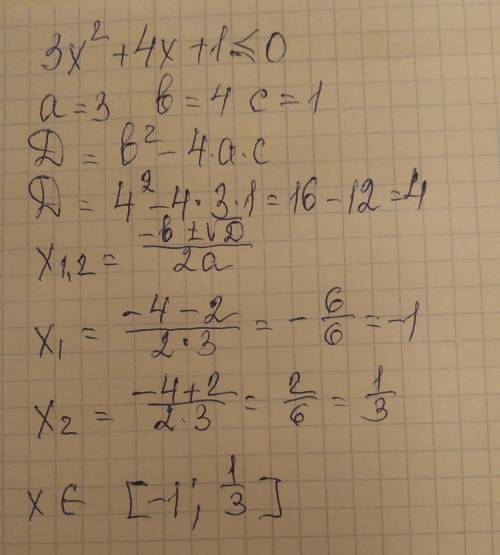 3x² + 4x + 1 ≤ 0
a = 3 в = 4 c = 1
Д = в² - 4·a·c
Д = 4² - 4·3·1 = 16 - 12 = 4
x₁,₂ = (-в ± √Д)/(2a)
x₁ = (-4 - 2)/(2·3) = -6/6 = -1
x₂ = (-4 + 2)/(2·3) = 2/6 = 1/3
x ∈ [-1; 1/3]